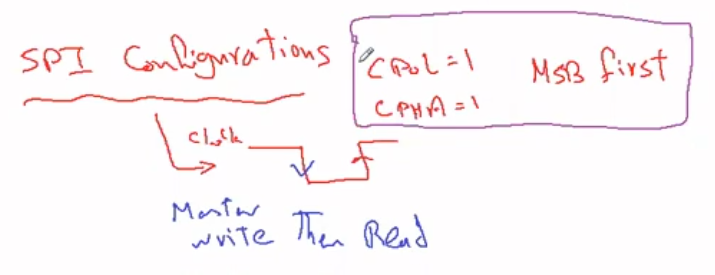 SPI Configurations
CPOL=1 MSB first
CPHA=1
clock
Master
write Then Read